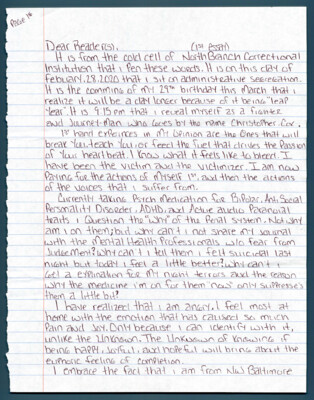 Page 1
Dear Reader(s), (1st essay)
It is from the cold cell of North Branch Correctional
Institution that I Pen these words. It is on this day of
february, 28, 2020 that I sit on administrative segregation.
It is the comming of my 29th birthday this March that I
realize it will be a day longer because of it being "leap
Year". It is 9:15 pm that I reveal myself as a fighter
and who goes by the name Christopher
1st hand expirinces in My opinion are the ones that will
break You, teach You, or feed the fuel that drives the Passion
of Your heart beat. I know what it feels like to bleed. I
have been the victim and the victimizer. I am now
Paying for the actions of Myself 1st, and then the actions
of the voices that I suffer from.
Currently taking Psych Medication for BiPolar, Anti Social
Personality Disorder, ADHD, and Active audio Paranoid
traits. I Question the "Why" of the Penal system. Not why
am I on them, but why can't I not share my
with the Mental Health Professionals w/o fear from
Judgement? Why can't I tell them I felt suicidal last
night but today I feel a little better? Why can't I
get a explination for My night terrors and the reason
why the medicine I'm on for them now only suppresses
them a little bit?
I have realized that I am angry. I feel most at
home with the emotion that has caused so much
Pain and Joy. Only because I can identify with it,
unlike the Unknown. The Unknown of Knowing if
being happy, Joyful, and hopeful will bring about the
euphoric feeling of completion.
I embrace the fact that I am from N.W. Baltimore